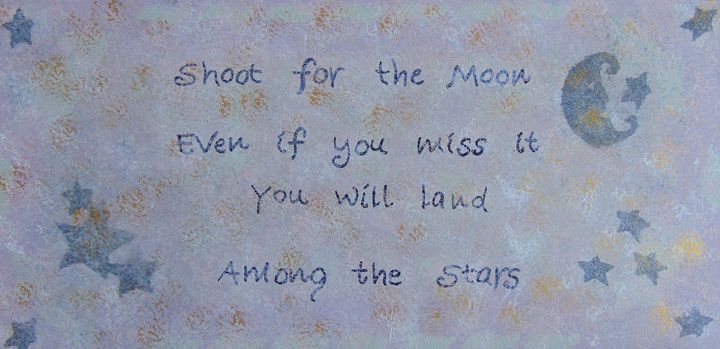 Shoot for the Moon
Even if you miss it
You will land
Among the Stars